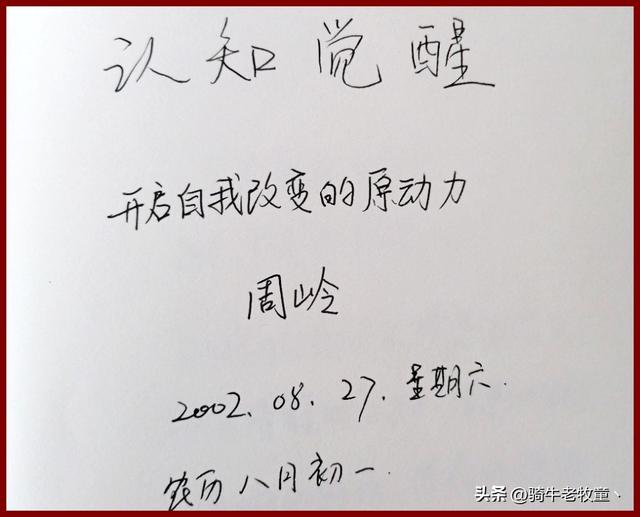 认知觉醒
开启自我改变的原动力
周岭
2002.08.27.星期六.
农历八月初一.
头条 @骑牛老牧童丶